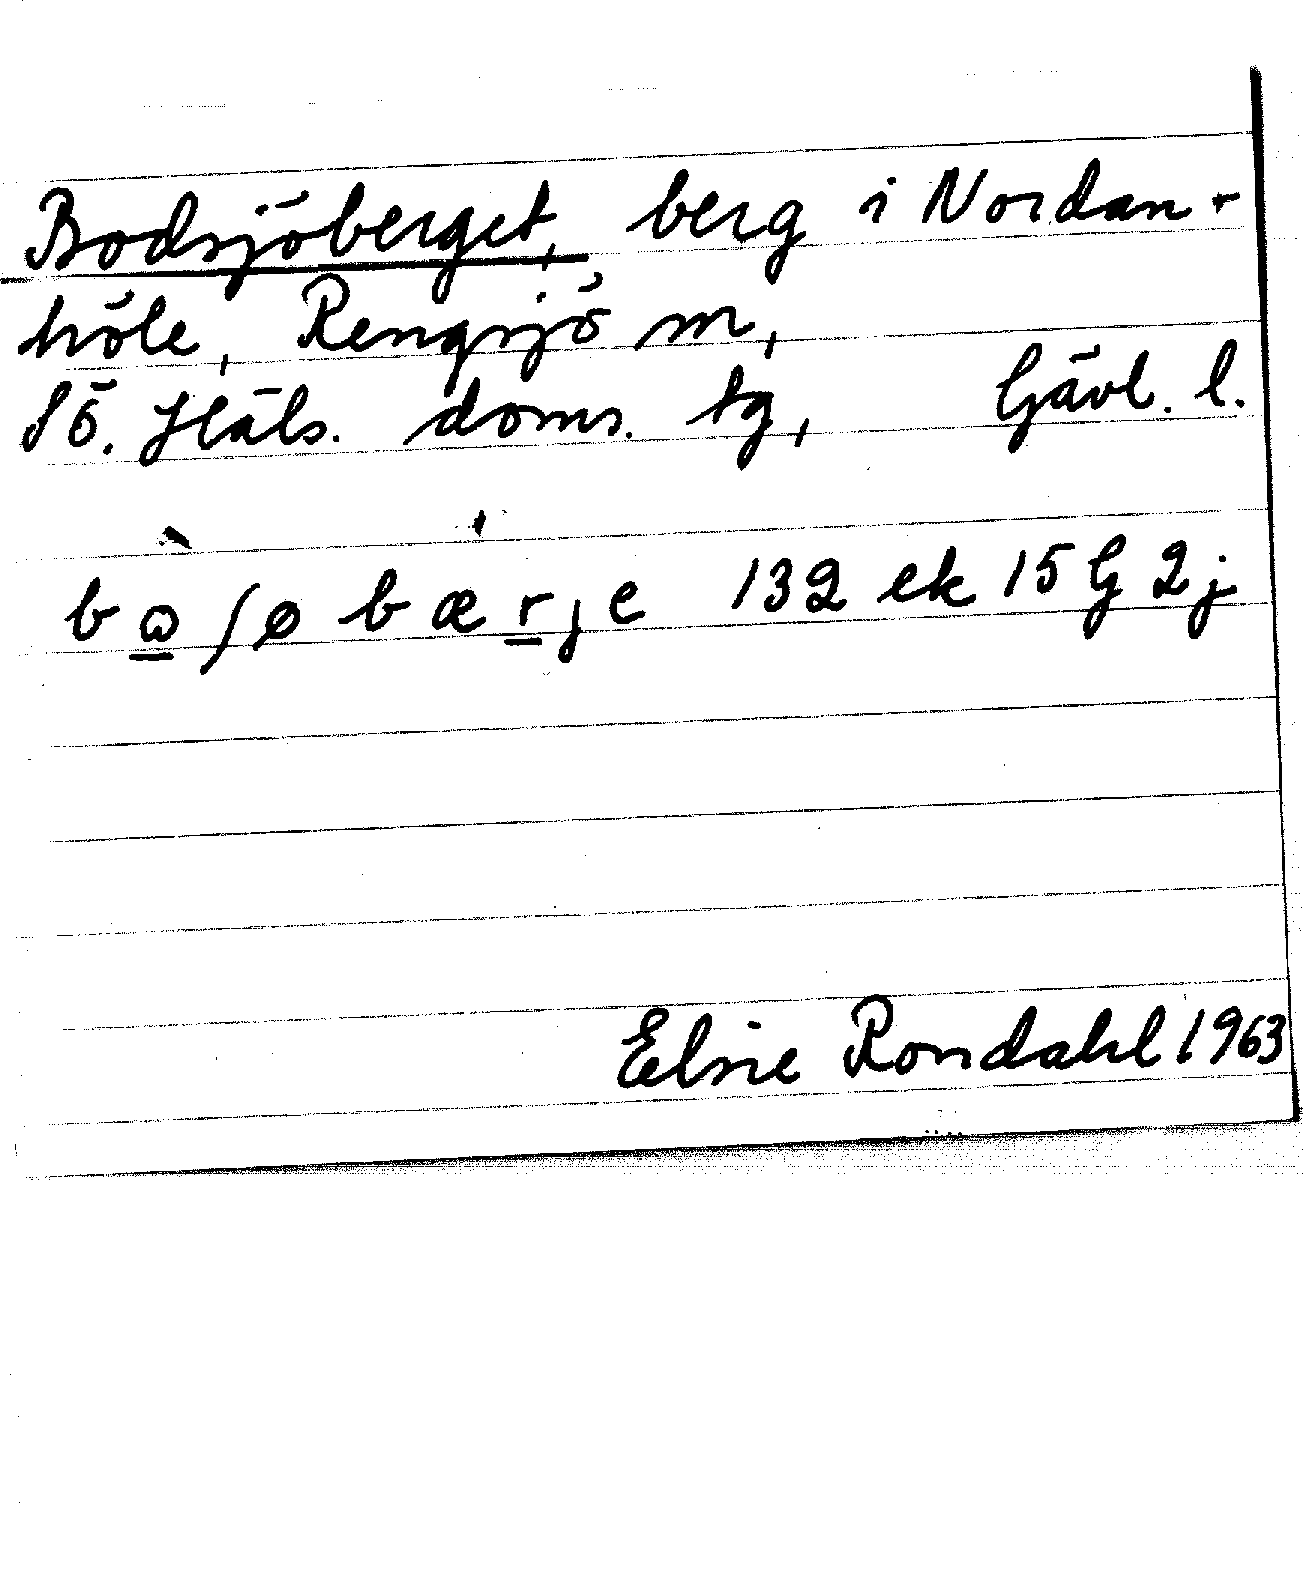 Bodsjöberget, berg i Nordan-
höle, Rengsjö sn,
Sö. Häls. doms. tg, Gävl. l.
bɷ̀ʃøbær̲je 132 ek 15 G 2 j
Elsie Rondahl 1963